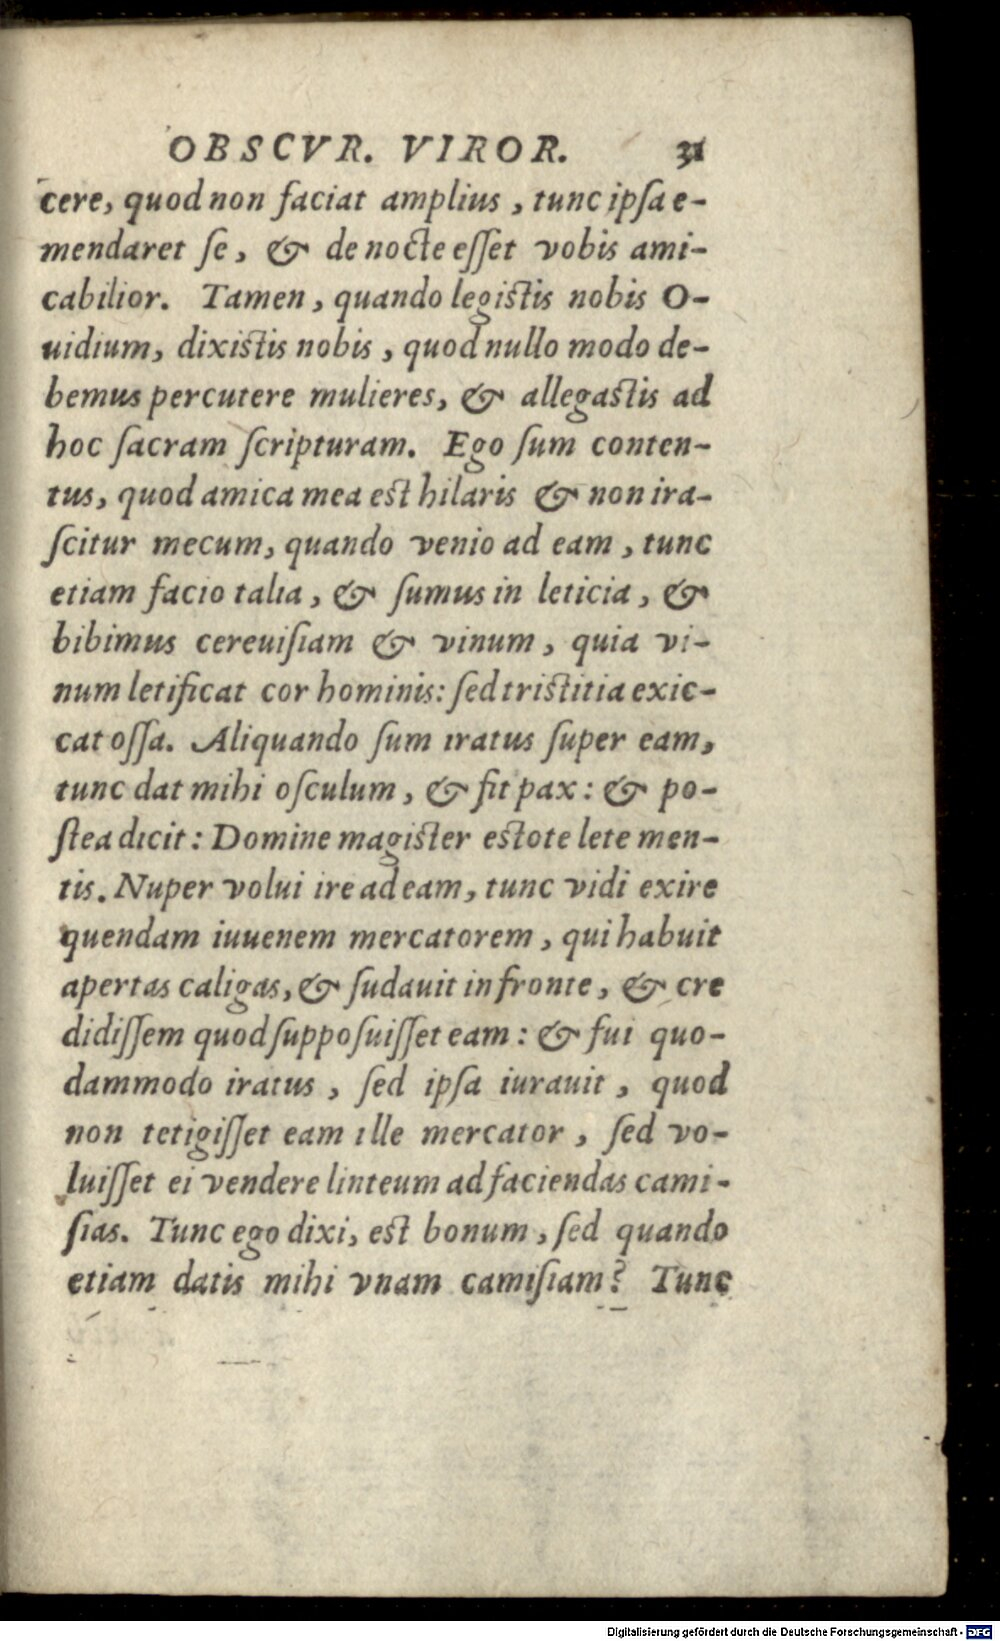 OBSCVR. VIROR. 31
cere, quod non faciat amplius, tunc ipſa e-
mendaret ſe, & de nocte eſſet vobis ami-
cabilior. Tamen, quando legistis nobis O-
uidium, dixistis nobis, quod nullo modo de-
bemus percutere mulieres, & allegastis ad
hoc ſacram ſcripturam. Ego ſum conten-
tus, quod amica mea est hilaris & non ira-
ſcitur mecum, quando venio ad eam, tunc
etiam facio talia, & ſumus in leticia, &
bibimus cereuiſiam & vinum, quia vi-
num letificat cor hominis: ſed tristitia exic-
cat oſſa. Aliquando ſum iratus ſuper eam,
tunc dat mihi oſculum, & fit pax: & po-
ſtea dicit: Domine magister estote lete men-
tis. Nuper volui ire ad eam, tunc vidi exire
quendam iuuenem mercatorem, qui habuit
apertas caligas, & ſudauit in fronte, & cre
didiſſem quod ſuppoſuiſſet eam: & fui quo-
dammodo iratus, ſed ipſa iurauit, quod
non tetigiſſet eam ille mercator, ſed vo-
luiſſet ei vendere linteum ad faciendas cami-
ſias. Tunc ego dixi, est bonum, ſed quando
etiam datis mihi vnam camiſiam? Tunc
Digitalisierung gefördert durch die Deutsche Forschungsgemeinschaft - DFG